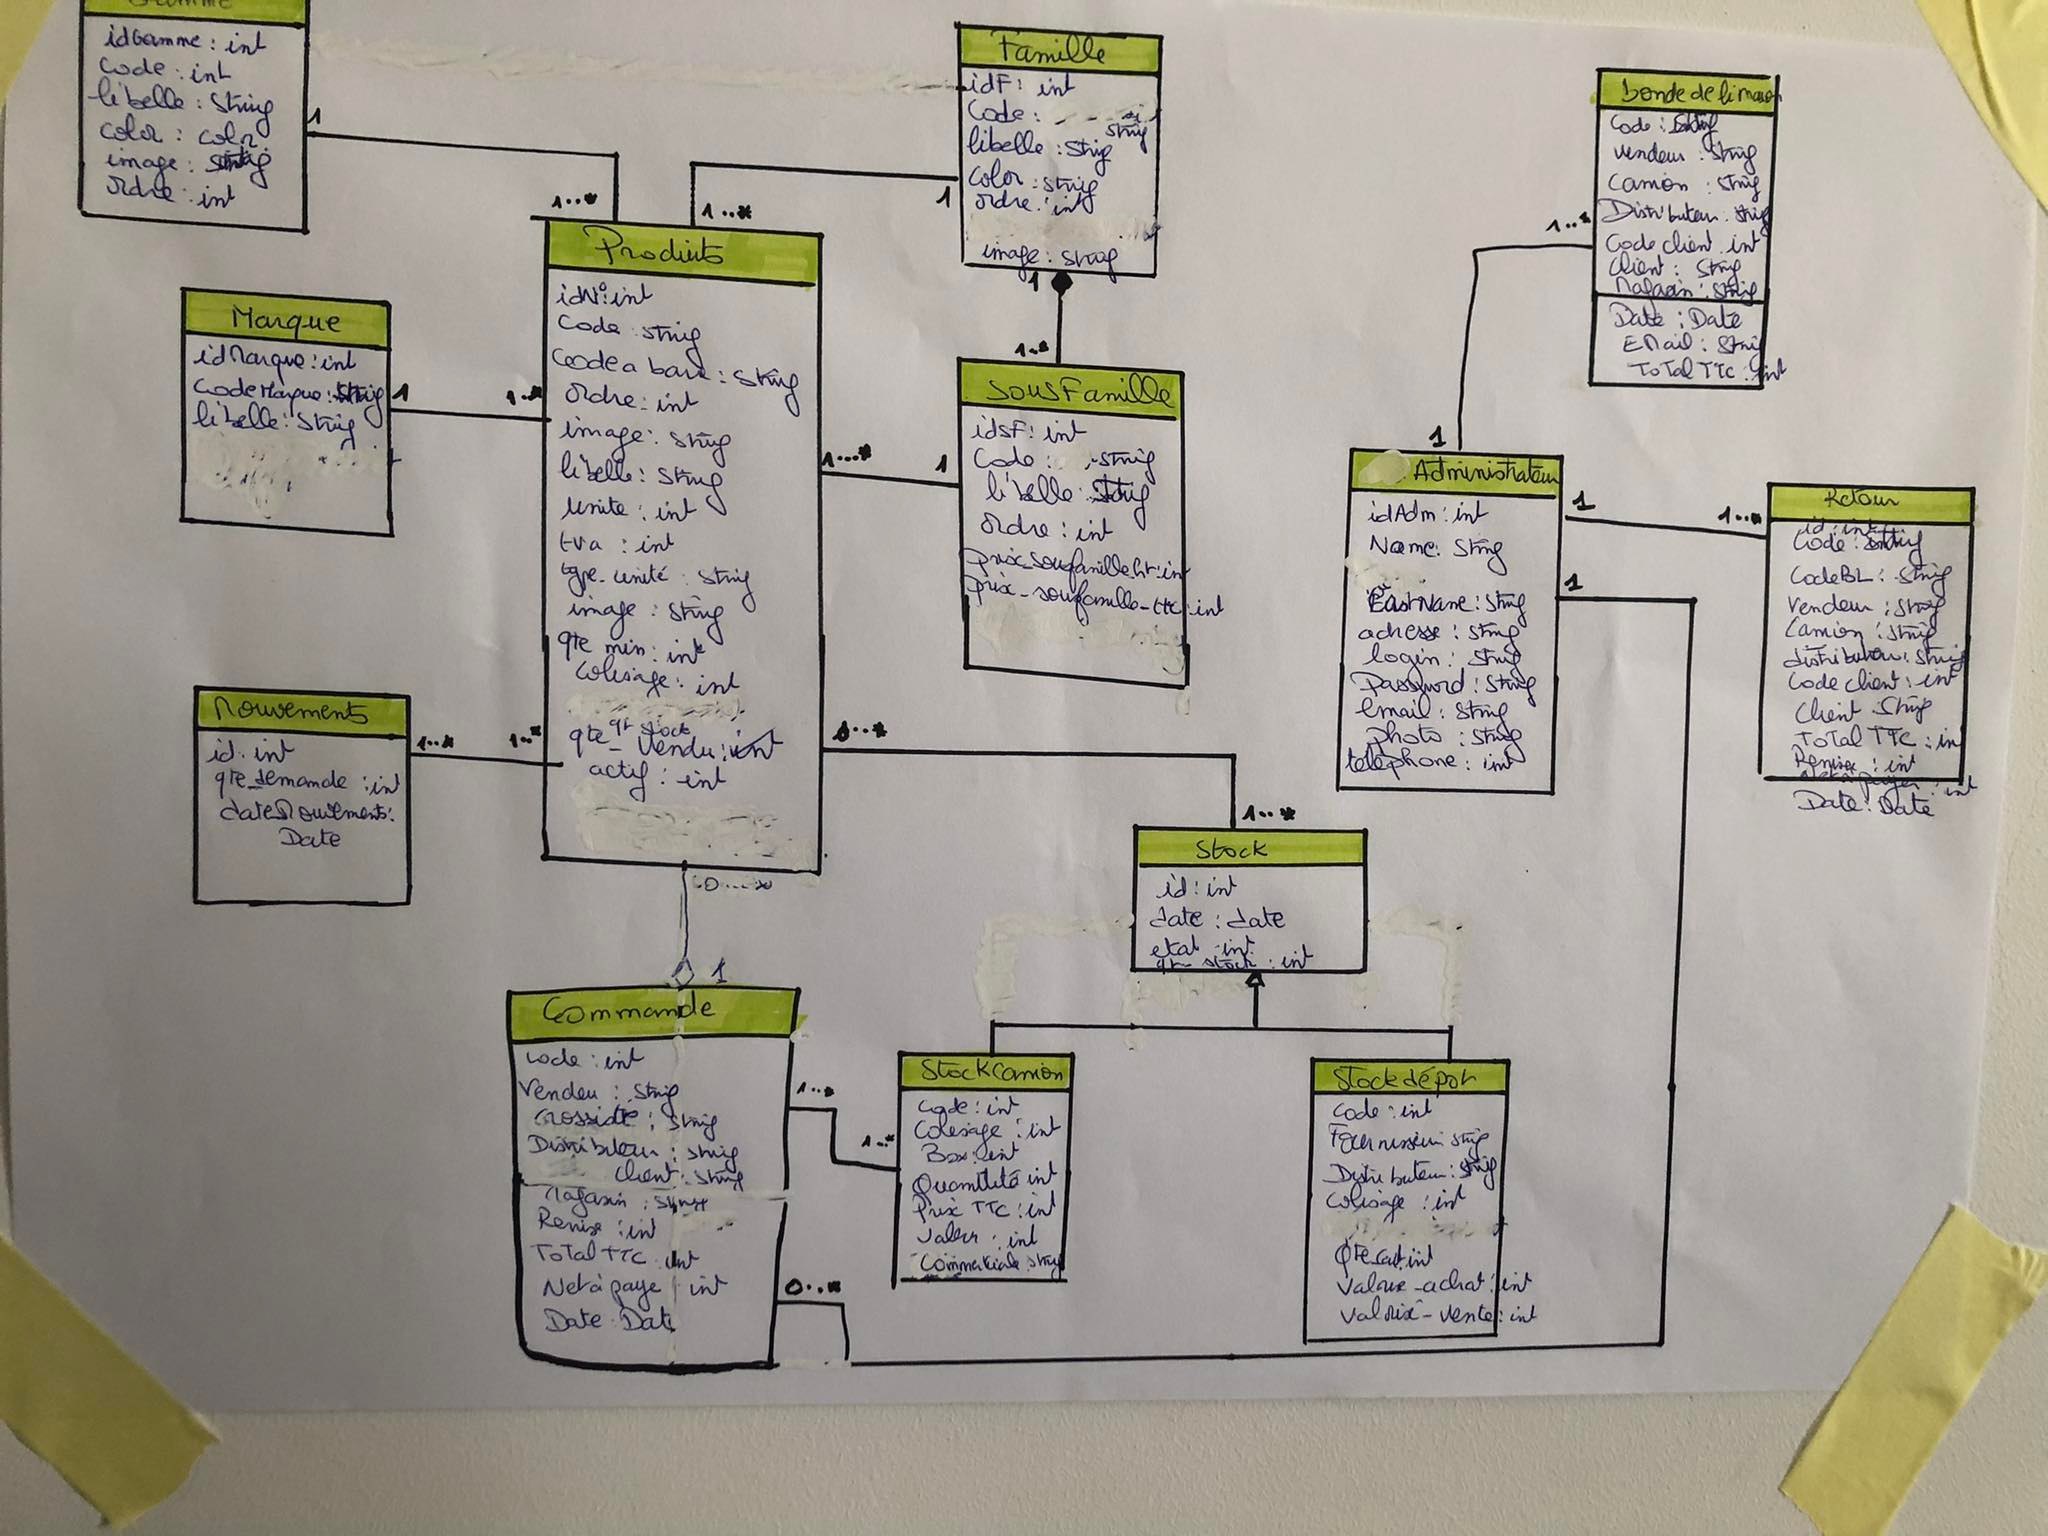 Gamme
idGamme : int
Code : int
libelle : String
color : color
image : String
ordre : int
1
1..*
Famille
idF : int
Code :
String
libelle : String
color : String
ordre : int
image : String
1..*
1
1
1..*
bon de de livraison
Code : String
vendeur : String
Camion : String
Distributeur : String
Code client int
Client : String
Magasin : String
Date : Date
EMail : String
ToTal TTC : int
1..*
1
Produits
idN° : int
Code : String
Code a bare : String
ordre : int
image : String
libelle : String
unite : int
tva : int
type_unité : String
image : String
qte min : int
Colisage : int
qte stock
qte_vendu : int
actif : int
Marque
idMarque : int
CodeMarque : String
libelle : String
1
1..*
SousFamille
idsF : int
Code : String
libelle : String
ordre : int
prix_sousfamille ht : int
prix_sousfamille_ttc : int
1...*
1
Administrateur
idAdm : int
Name : String
LastName : String
adresse : String
login : String
Password : String
Email : String
photo : String
telephone : int
1
1..*
1
Retour
id : int
Code : String
CodeBL : String
Vendeur : String
Camion : String
distributeur : String
Code client : int
Client String
ToTal TTC : int
Remise : int
Net à payer : int
Date : Date
Mouvements
id : int
qte_demande : int
dateMouvements :
Date
1..*
1..*
0...*
1..*
Stock
id : int
date : date
etat int
qte stock : int
0....*
1
Commande
code : int
Vendeu : String
Grossiste : String
Distributeur : String
Client : String
Magasin : String
Remise : int
ToTal TTC int
Net à paye int
Date : Date
1..*
1..*
0..*
StockCamion
Code : int
Colisage : int
Box : int
Quantité int
Prix TTC : int
Valeur : int
Commerciale String
Stock dépot
Code : int
Fournisseur String
Distributeur : String
Colisage : int
Valorix_achat : int
Valorix_vente : int